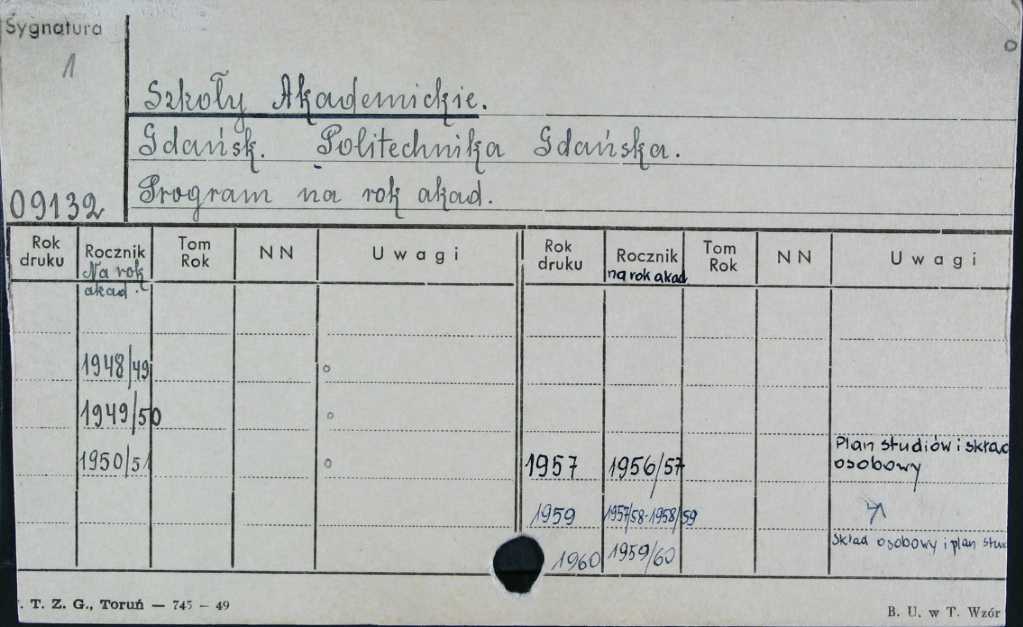 Sygnatura
1
Szkoły Akademickie.
Gdańsk. Politechnika Gdańska.
Program na rok akad.
09132
Rok druku Rocznik Na rok akad. Tom Rok NN Uwagi Rok druku Rocznik na rok akad Tom Rok NN Uwagi
1948/49
1949/50
1950/51 1957 1956/57 Plan studiów i skład osobowy
1959 1957/58-1958/59
1960 1959/60 Skład osobowy i plan stud
. T. Z. G., Toruń — 745 — 49 B. U. w T. Wzór